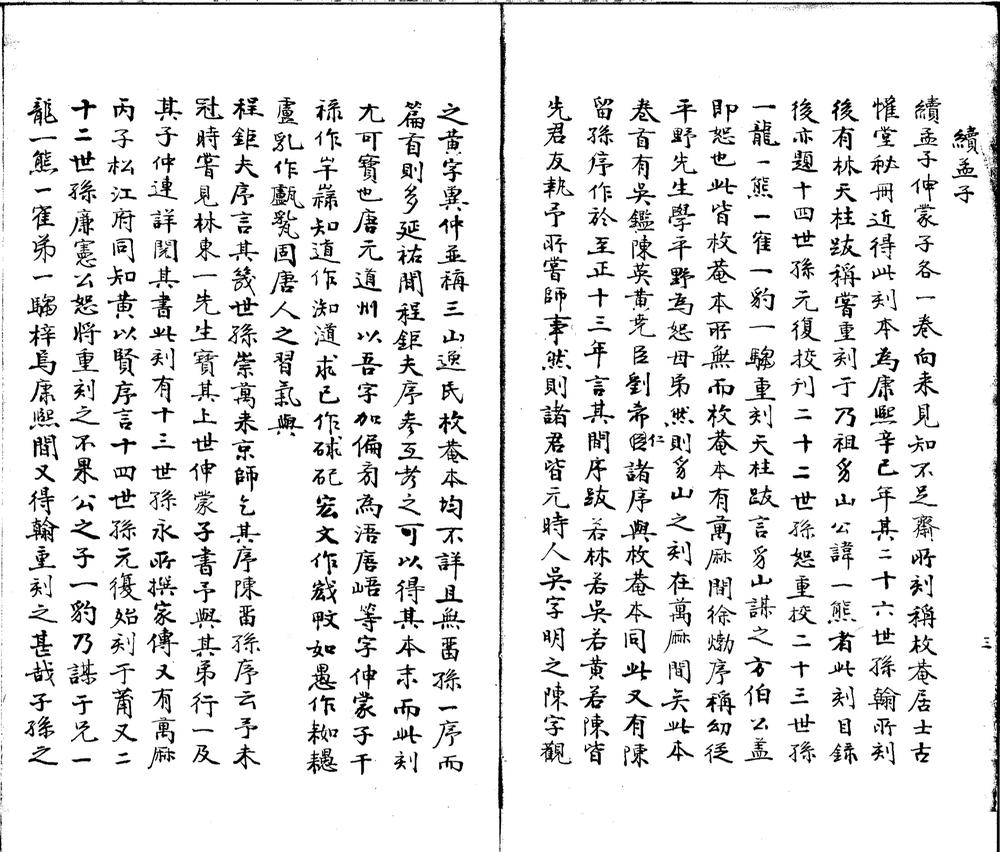 續孟子
續孟子伸蒙子各一卷向來見知不足齋所刻稱枚菴居士古
惟堂秘冊近得此刻本為康熙辛巳年其二十六世孫翰所刻
後有林天柱跋稱嘗重刻于乃祖豸山公諱一熊者此刻目錄
後亦題十四世孫元復校刊二十二世孫恕重校二十三世孫
一龍一熊一寉一豹一騶重刻天柱跋言豸山謀之方伯公蓋
即恕也此皆枚菴本所無而枚菴本有萬厤間徐㶿序稱幼從
平野先生學平野為恕母弟然則豸山之刻在萬厤間矣此本
卷首有吳鑑陳英黄尭臣劉希仁諸序與枚菴本同此又有陳
留孫序作於至正十三年言其間序跋若林若吳若黄若陳皆
先君友執予所嘗師事然則諸君皆元時人吳字明之陳字觀
之黄字巽仲並稱三山逸民枚菴本均不詳且無畱孫一序而
篇首則多延祐間程鉅夫序參互考之可以得其本末而此刻
尤可寶也唐元道州以吾字加偏旁為浯㕂峿等字伸蒙子干
祿作䇂祿知道作𣉻道求已作䂇䂆宏文作㝫㪅如愚作㚢䎹
盧乳作㔧㲉固唐人之習氣與
程鉅夫序言其幾世孫崇萬來京師乞其序陳畱孫序云予未
冠時嘗見林東一先生寶其上世伸蒙子書予與其弟行一及
其子仲連詳閱其書此刻有十三世孫永所撰家傳又有萬厤
丙子松江府同知黄以賢序言十四世孫元復始刻于莆又二
十二世孫廉憲公恕將重刻之不果公之子一豹乃謀于兄一
龍一熊一寉弟一騶梓焉康熙間又得翰重刻之甚哉子孫之